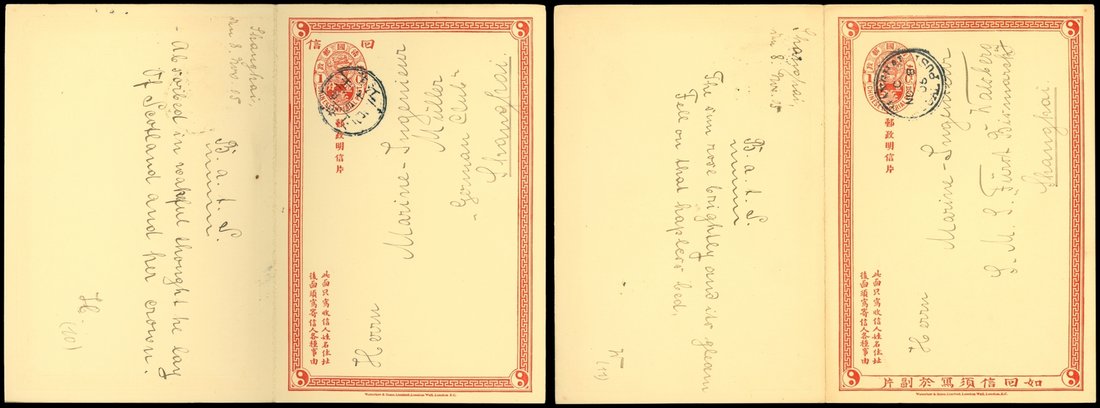 Shanghai,
den 8. Nov. 05
B. a. t. S.
Absorbed in wakeful thought he lay
Of Scotland and her crown.
H.
(10)
信回
郵政明信片
Herrn
Marine-Ingenieur
Müller
-German Club-
Shanghai.
此面只寫收信人姓名住址
後面須寫寄信人各種事由
Waterlow & Sons Limited, London Wall, London, E.C.
Shanghai,
den 8. Nov. 05
B. a. t. S.
The sun rose brightley and its gleam
Fell on that hapless bed,
(11)
郵政明信片
Herrn
Marine-Ingenieur
S. M. S. Fürst Bismarck
Shanghai
此面只寫收信人姓名住址
後面須寫寄信人各種事由
片副於寫須信回如
Waterlow & Sons Limited, London Wall, London, E.C.